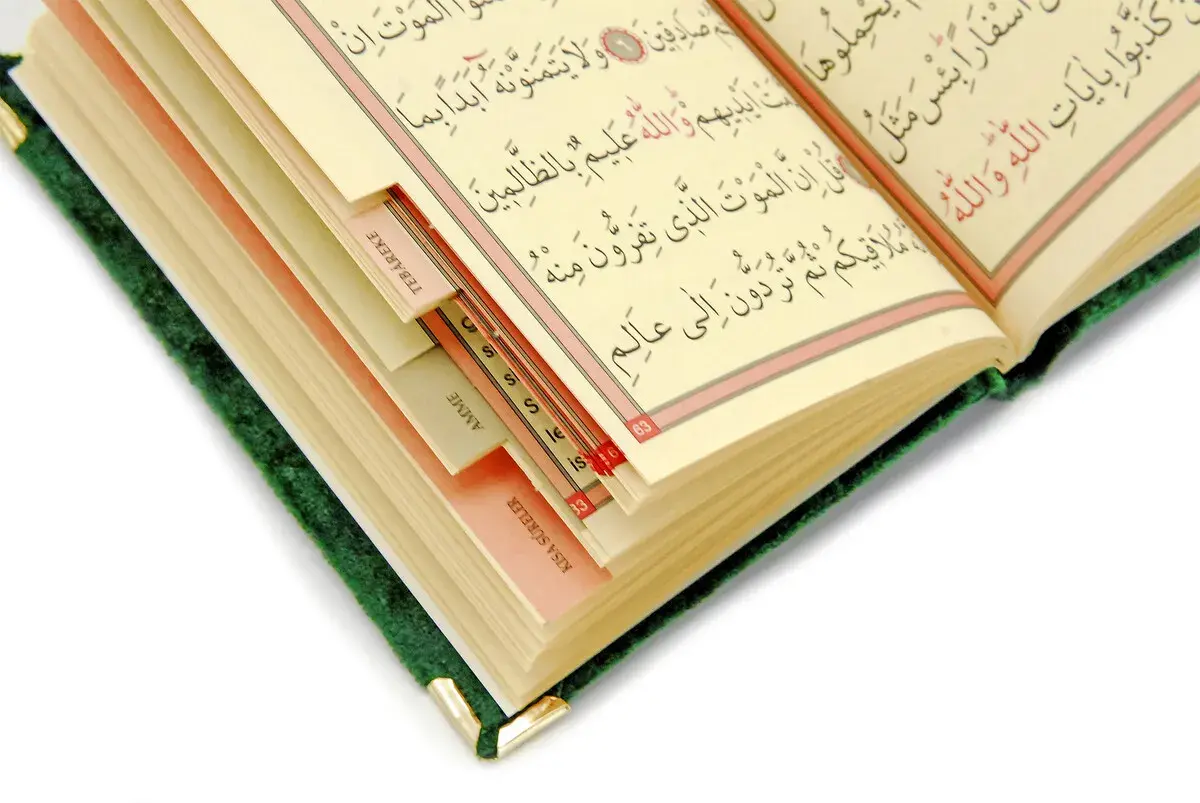 يَحْمِلُوهَا
اَسْفَارًا بِئْسَ مَثَلُ
كَذَّبُوا بِاٰيَاتِ اللّٰهِ وَاللّٰهُ
الْمَوْتَ اِنْ
صَادِقٖينَ ٦ وَلَا يَتَمَنَّوْنَهُٓ اَبَدًا بِمَا
اَيْدٖيهِمْ وَاللّٰهُ عَلٖيمٌ بِالظَّالِمٖينَ
قُلْ اِنَّ الْمَوْتَ الَّذٖى تَفِرُّونَ مِنْهُ
مُلَاقٖيكُمْ ثُمَّ تُرَدُّونَ اِلٰى عَالِمِ
63
TEBÂREKE
AMME
KISA SÛRELER